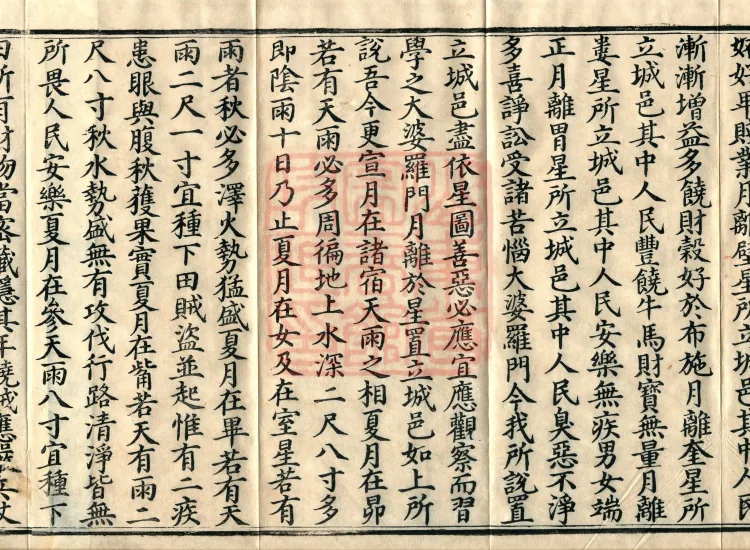 財業月離壁星所立城邑其中人民
漸漸增益多饒財穀好於布施月離奎星所
立城邑其中人民豐饒牛馬財寶無量月離
婁星所立城邑其中人民安樂無疾男女端
正月離胃星所立城邑其中人民臭惡不淨
多喜諍訟受諸苦惱大婆羅門今我所說置
立城邑盡依星圖善惡必應宜應觀察而習
學之大婆羅門月離於星置立城邑如上所
說吾今更宣月在諸宿天雨之相夏月在昴
若有天雨必多周徧地上水深二尺八寸多
即陰雨十日乃止夏月在女及在室星若有
雨者秋必多澤火勢猛盛夏月在畢若有天
雨二尺一寸宜種下田賊盜並起惟有二疾
患眼與腹秋獲果實夏月在觜若天有雨二
尺八寸秋水勢盛無有攻伐行路清淨皆無
所畏人民安樂夏月在參天雨八寸宜種下
田所有財物當密藏隱其年饒賊應兵仗